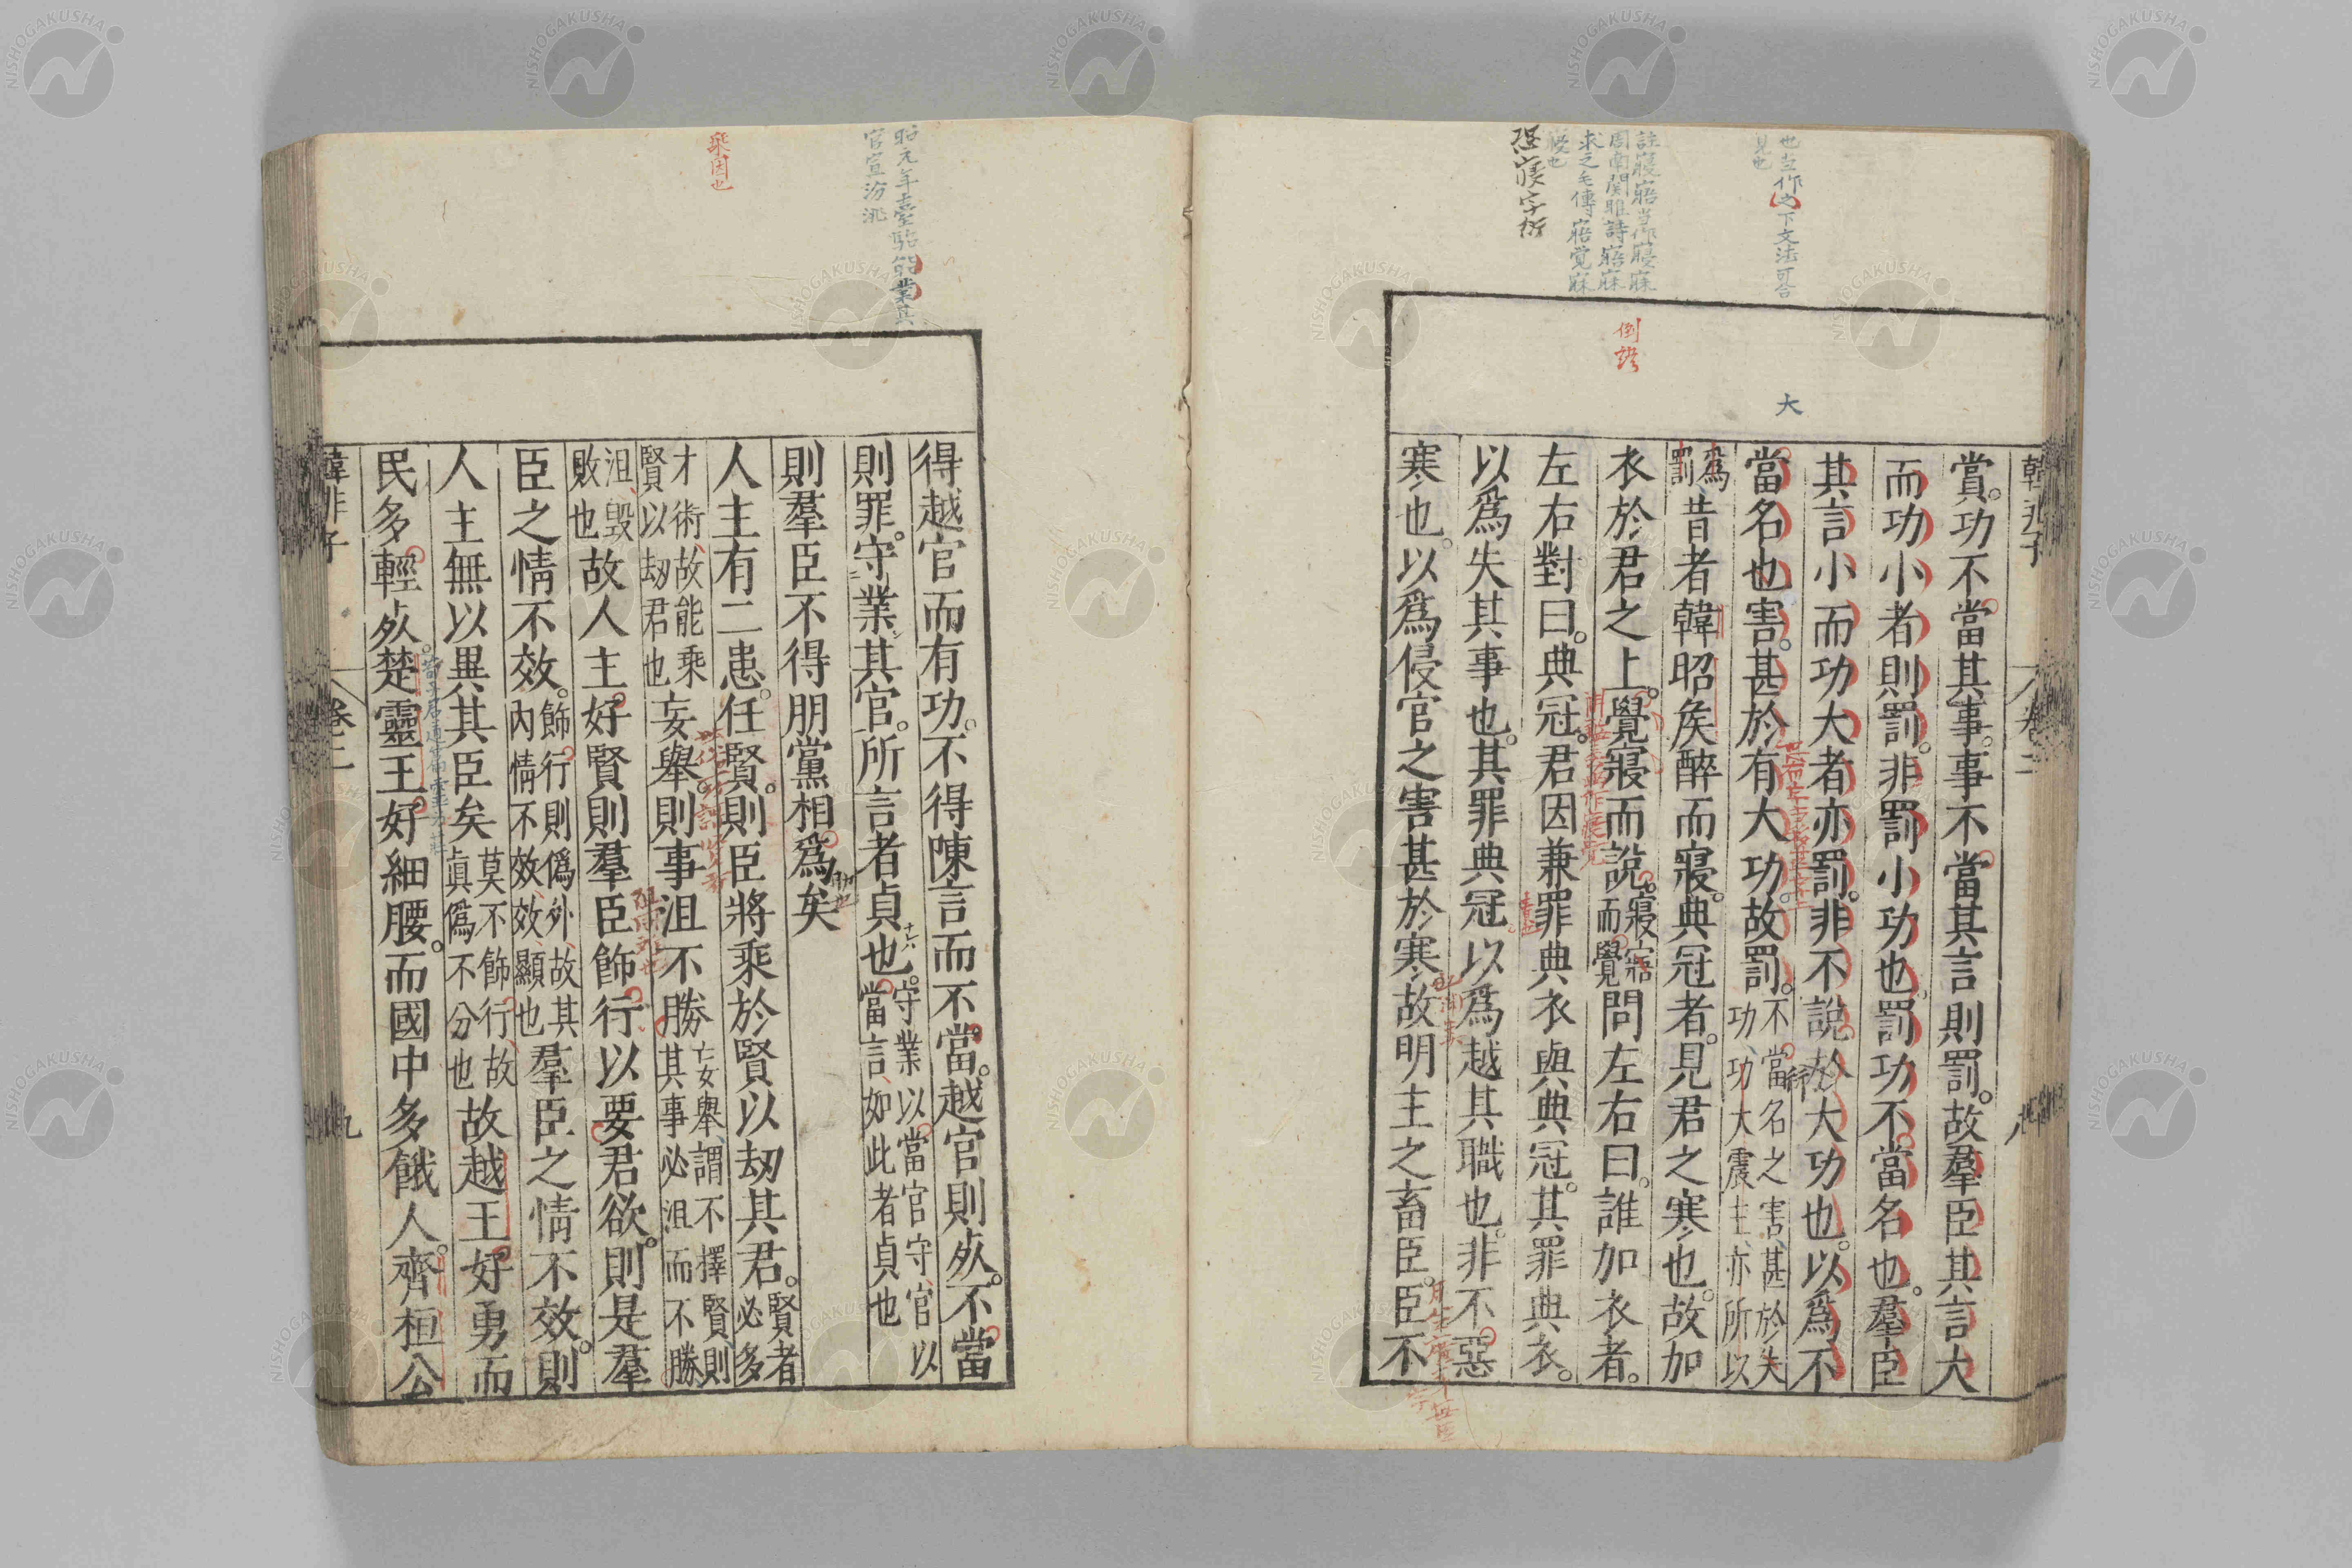 韓非子 卷二 八
賞。功不當其事。事不當其言則罰。故羣臣其言大
而功小者則罰。非罰小功也。罰功不當名也。羣臣
其言小而功大者亦罰。非不說於大功也。以爲不
當名也害。甚於有大功。故罰。不當名之害、甚於失功、功大震主、亦所以
爲罰、昔者韓昭矦醉而寢。典冠者。見君之寒也。故加
衣於君之上。覺寢而說。寢寤而覺問左右曰。誰加衣者。
左右對曰。典冠。君因兼罪典衣與典冠。其罪典衣。
以爲失其事也。其罪典冠。以爲越其職也。非不惡
寒也。以爲侵官之害甚於寒。故明主之畜臣。臣不
得越官而有功。不得陳言而不當。越官則死。不當
則罪。守業其官。所言者貞也。守業以當官守、官以當言、如此者貞也
則羣臣不得朋黨相爲矣
人主有二患。任賢。則臣將乘於賢以劫其君。賢者必多
才術、故能乘賢以劫君也妄舉。則事沮不勝妄舉、謂不擇賢、則其事必沮而不勝
沮、毀敗也故人主好賢則羣臣飾行以要君欲。則是羣
臣之情不效。飾行則僞外、故其內情不效、效、顯也羣臣之情不效。則
人主無以異其臣矣莫不飾行、故眞僞不分也故越王好勇而
民多輕死。楚靈王好細腰。而國中多餓人。齊桓公
韓非子 卷二 九
也当作之下文法可合
見也
大
註寢寤当作寢寐
周南関雎詩寤寐
求之毛傳寤覚寐
寢也
恐寢字衍
倒誤
昭元年臺駘能業其
官宣汾洮
乘因也
NISHOGAKUSHA